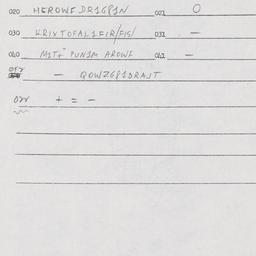 020 HEROWF DR1G81N 021 O
030 KRIXTOFAL1FIR/FIS/ 031 —
040 M1T+ PUN1M AROWF 041 —
— QOWZG81DRAJT
+ = —